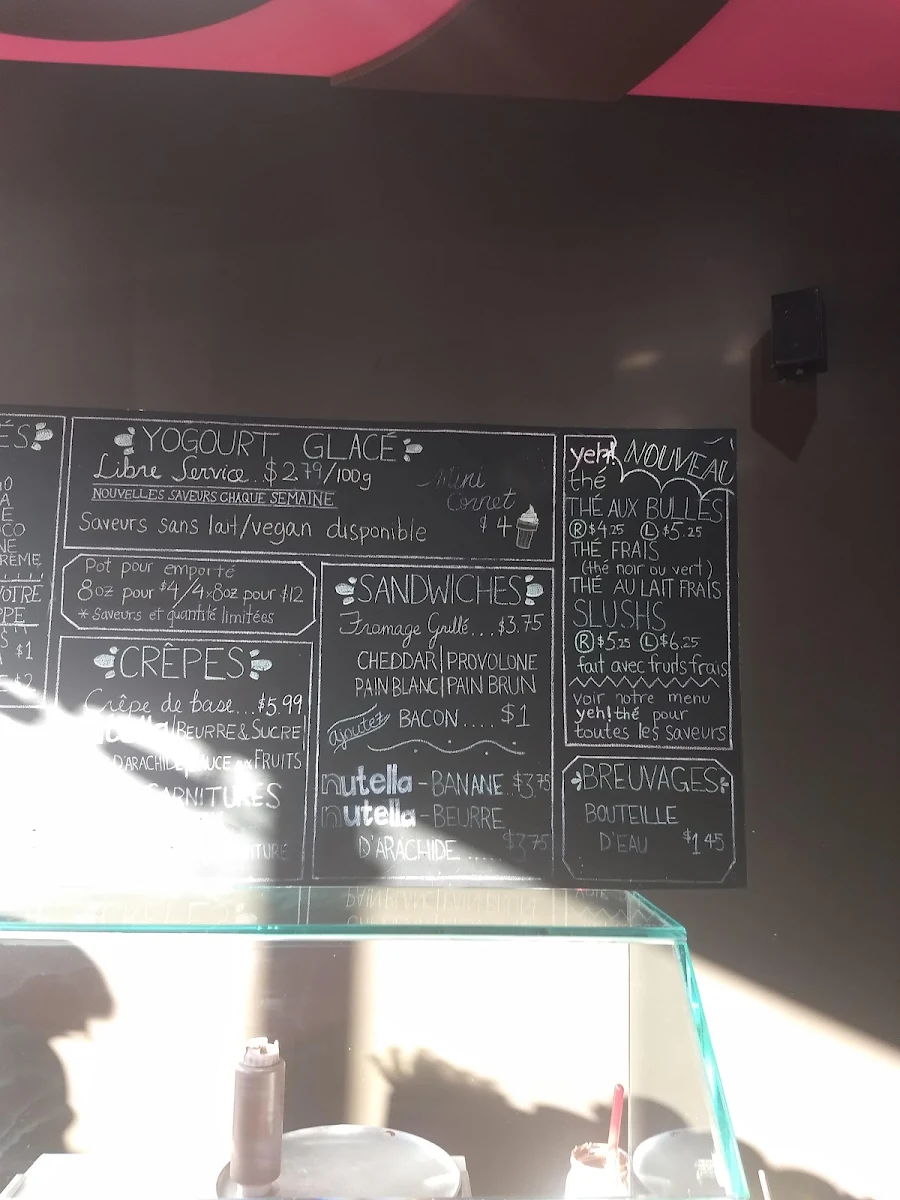 ÉS
CO
NE
CRÈME
VOTRE
PPE
$1
$2
YOGOURT GLACÉ
Libre Service..$2.79/100g
NOUVELLES SAVEURS CHAQUE SEMAINE
Saveurs sans lait/vegan disponible
Mini
Cornet
$4
Pot pour emporté
8oz pour $4/4x8oz pour $12
* Saveurs et quantité limitées
CRÊPES
Crêpe de base...$5.99
BEURRE & SUCRE
D'ARACHIDE FRUITS
GARNITURES
SANDWICHES
Fromage Grillé...$3.75
CHEDDAR|PROVOLONE
PAIN BLANC|PAIN BRUN
ajoutez BACON.....$1
nutella-BANANE..$3.75
nutella-BEURRE
D'ARACHIDE.....$3.75
yeh! NOUVEAU
thé
THÉ AUX BULLES
R $4.25 L $5.25
THÉ FRAIS
(thé noir ou vert)
THÉ AU LAIT FRAIS
SLUSHS
R $5.25 L $6.25
fait avec fruits frais
voir notre menu
yeh!thé pour
toutes les saveurs
BREUVAGES
BOUTEILLE
D'EAU $1.45